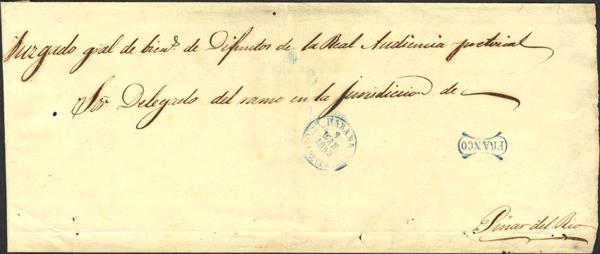 Juzgado gral de bien.s de Difuntos de la Real Audiencia pretorial
Sor Delegado del ramo en la jurisdiccion de
HABANA
MAR
FRANCO
Pinar del Rio